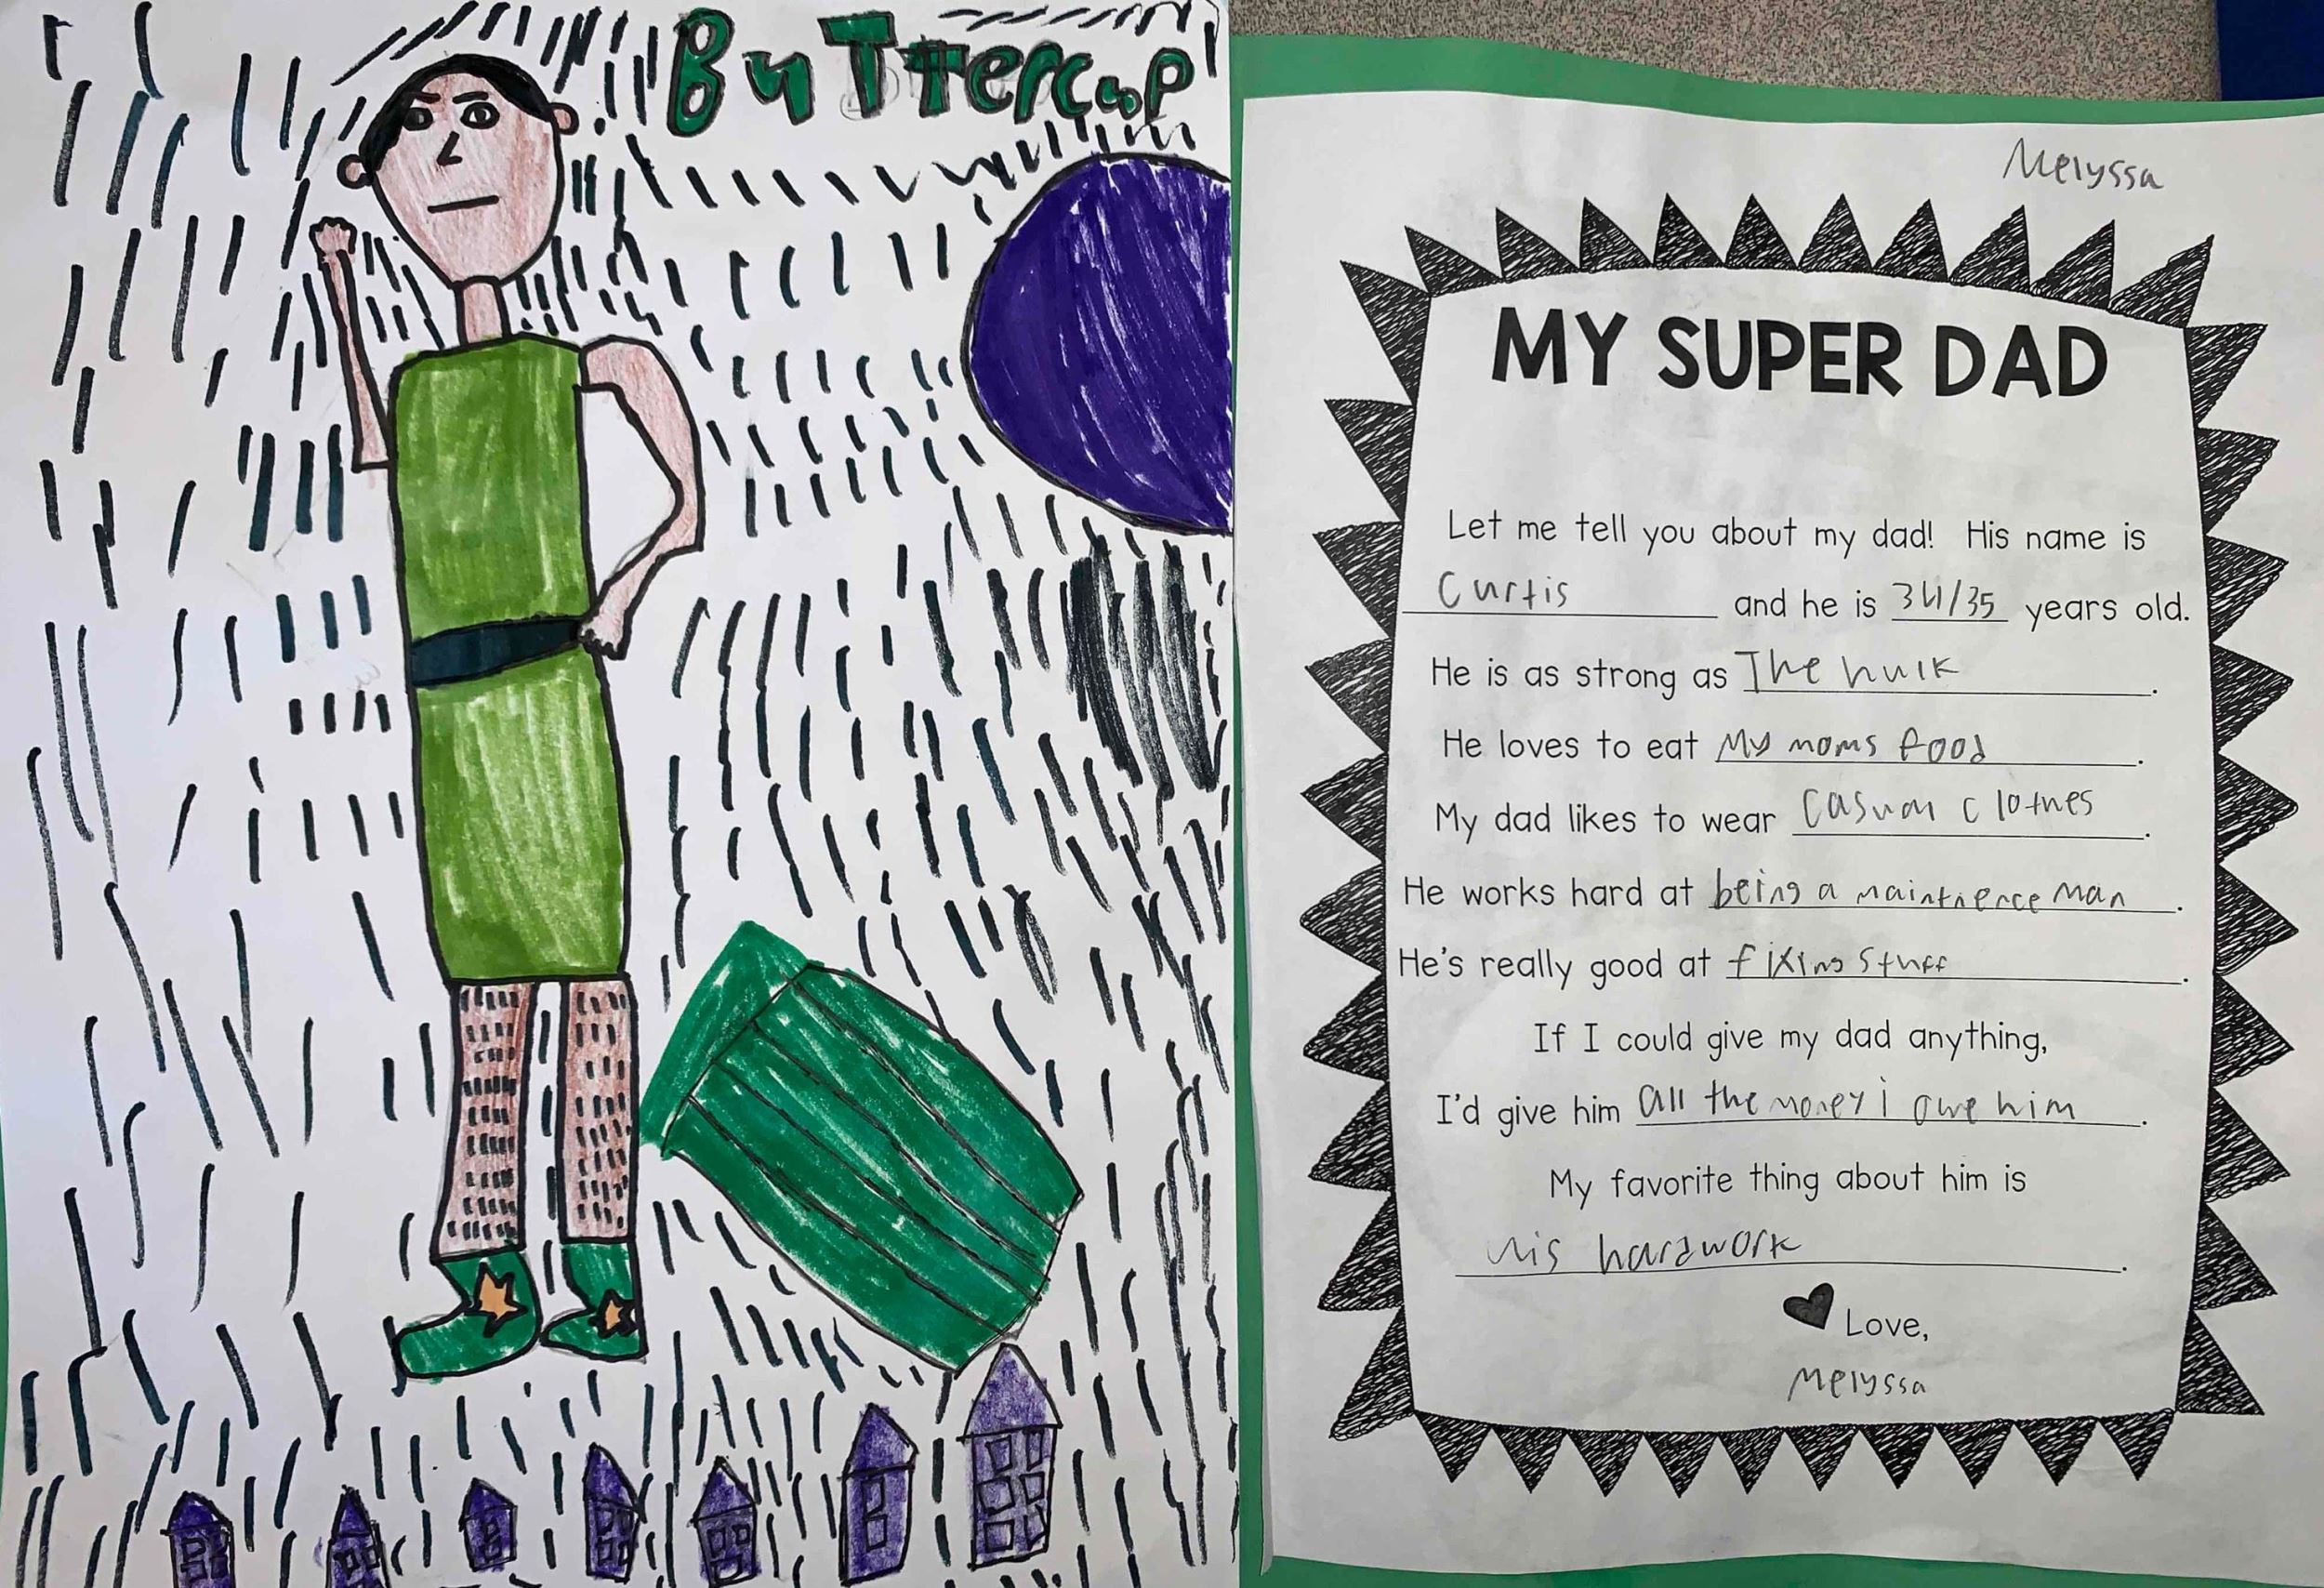 ButTercup
Melyssa
MY SUPER DAD
Let me tell you about my dad! His name is
Curtis and he is 34/35 years old.
He is as strong as The hulk.
He loves to eat My moms food.
My dad likes to wear Casual clothes.
He works hard at being a maintnence man.
He's really good at fixing stuff.
If I could give my dad anything,
I'd give him all the money i owe him.
My favorite thing about him is
his hardwork.
Love,
Melyssa